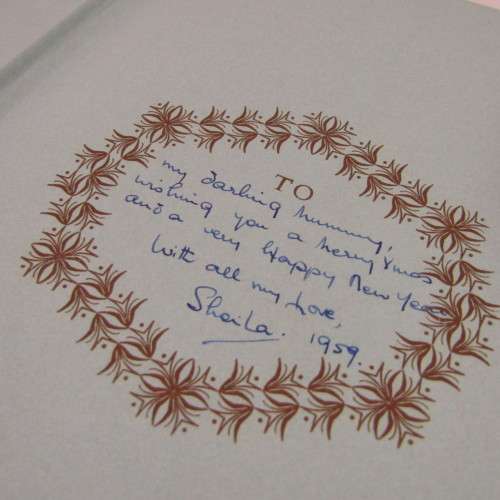 TO
my darling mummy,
wishing you a merry Xmas
and a very Happy New Year
With all my Love,
Sheila. 1959.